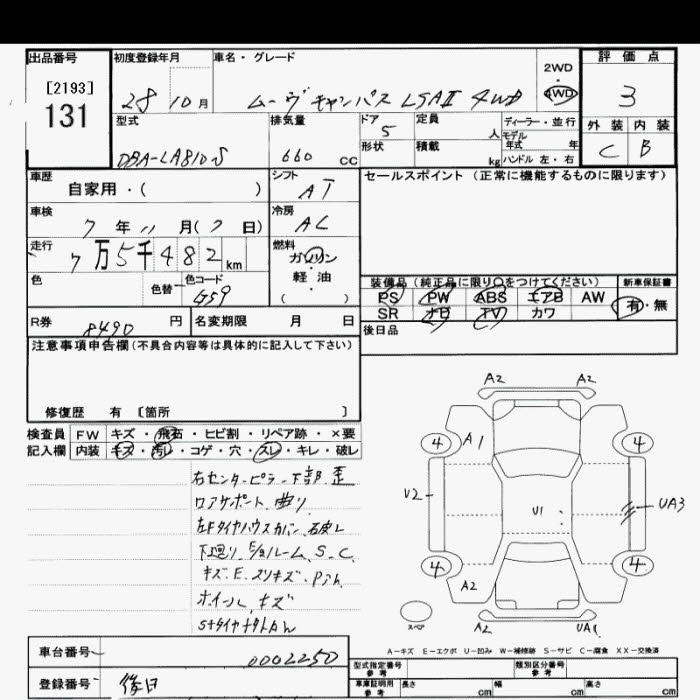 出品番号 初度登録年月 車名・グレード 2WD ・ 4WD 評価点
[2193]
131
28 10月 ムーヴキャンバス LSAⅡ 4WD 3
型式 排気量 ドア 5 定員 人 ディーラー・並行 外装 内装
モデル年式 年
DBA-LA810S 660 CC 形状 積載 kg ハンドル 左・右 C B
車歴 自家用・( ) シフト AT セールスポイント(正常に機能するものに限ります)
車検 7年11月(7日) 冷房 AC
走行 7万5千482km 燃料 ガソリン・軽油・( )
色 色替 色コード G59
装備品(純正品に限り○をつけてください) 新車保証書
PS PW ABS エアB AW 有・無
SR ナビ TV カワ
R券 8490円 名変期限 月 日 後日品
注意事項申告欄(不具合内容等は具体的に記入して下さい)
修復歴 有 〔箇所 〕
検査員記入欄 FW キズ・飛石・ヒビ割・リペア跡・×要
内装 キズ・汚レ・コゲ・穴・スレ・キレ・破レ
右センターピラー下部 歪
ロアサポート 曲り
左Fタイヤハウスカバー
下廻り E/gルーム S.C
キズ.E.スリキズ
ホイール キズ
A2 A2
4 A1 4
U2 U1 UA3
4 A2 4
スペア A2 UA1
A-キズ E-エクボ U-凹み W-補修跡 S-サビ C-腐食 XX-交換済
車台番号 0002250
型式指定番号 参考 類別区分番号 参考
登録番号 後日 車庫証明用 参考 長さ cm 幅 cm 高さ cm